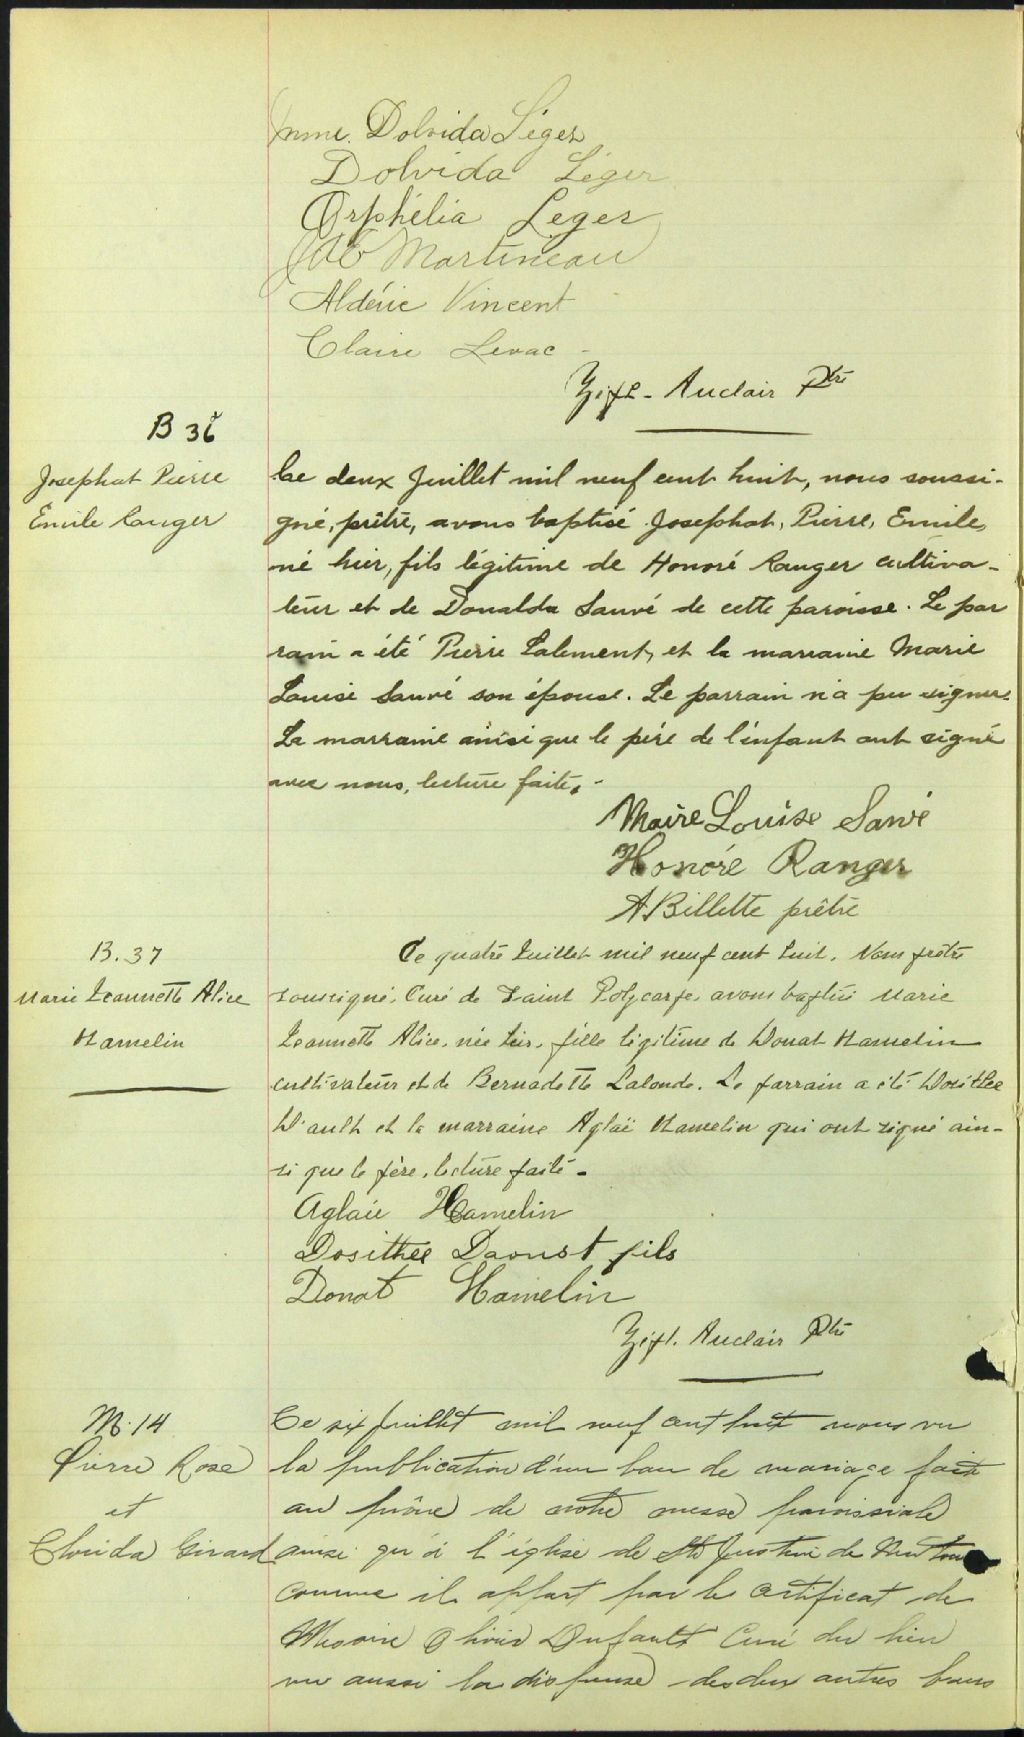 Mme. Dolvida Léger
Dolvida Léger
Orphélia Leger
Martineau
Aldéric Vincent
Claire Levac -
Zéph. Auclair Ptre
B 36
Josephat Pierre
Emile Ranger
Ce deux Juillet mil neuf cent huit, nous soussi-
gné, prêtre, avons baptisé Josephat, Pierre, Emile,
né hier, fils légitime de Honoré Ranger cultiva-
teur et de Donalda Sauvé de cette paroisse. Le par
rain a été Pierre Lalement, et la marraine Marie
Louise Sauvé son épouse. Le parrain n'a pu signer.
La marraine ainsi que le père de l'enfant ont signé
avec nous, lecture faite. -
Maire Louise Sauvé
Honoré Ranger
A Billette prêtre
B. 37
Marie Jeannette Alice
Hamelin
Ce quatre Juillet mil neuf cent huit, Nous prêtre
soussigné, Curé de Saint Polycarpe, avons baptisé Marie
Jeannette Alice, née hier, fille légitime de Donat Hamelin
cultivateur et de Bernadette Lalonde. Le parrain a été Dosithée
D'ault et la marraine Aglaë Hamelin qui ont signé ain-
si que le père, lecture faite -
Aglaée Hamelin
Dosithée Daoust fils
Donat Hamelin
Zéph. Auclair Ptre
M. 14
Pierre Rose
et
Clorida Girard
Ce six Juillet mil neuf cent huit nous vu
la publication d'un ban de mariage faite
au prône de notre messe paroissiale
ainsi qu'à l'église de Ste Justine de Newton
comme il appert par le certificat de
Messire Olivier Dufault Curé du lieu
vu aussi la dispense des deux autres bans